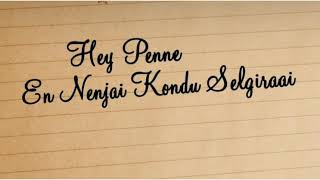 Hey Penne
En Nenjai Kondu Selgiraai